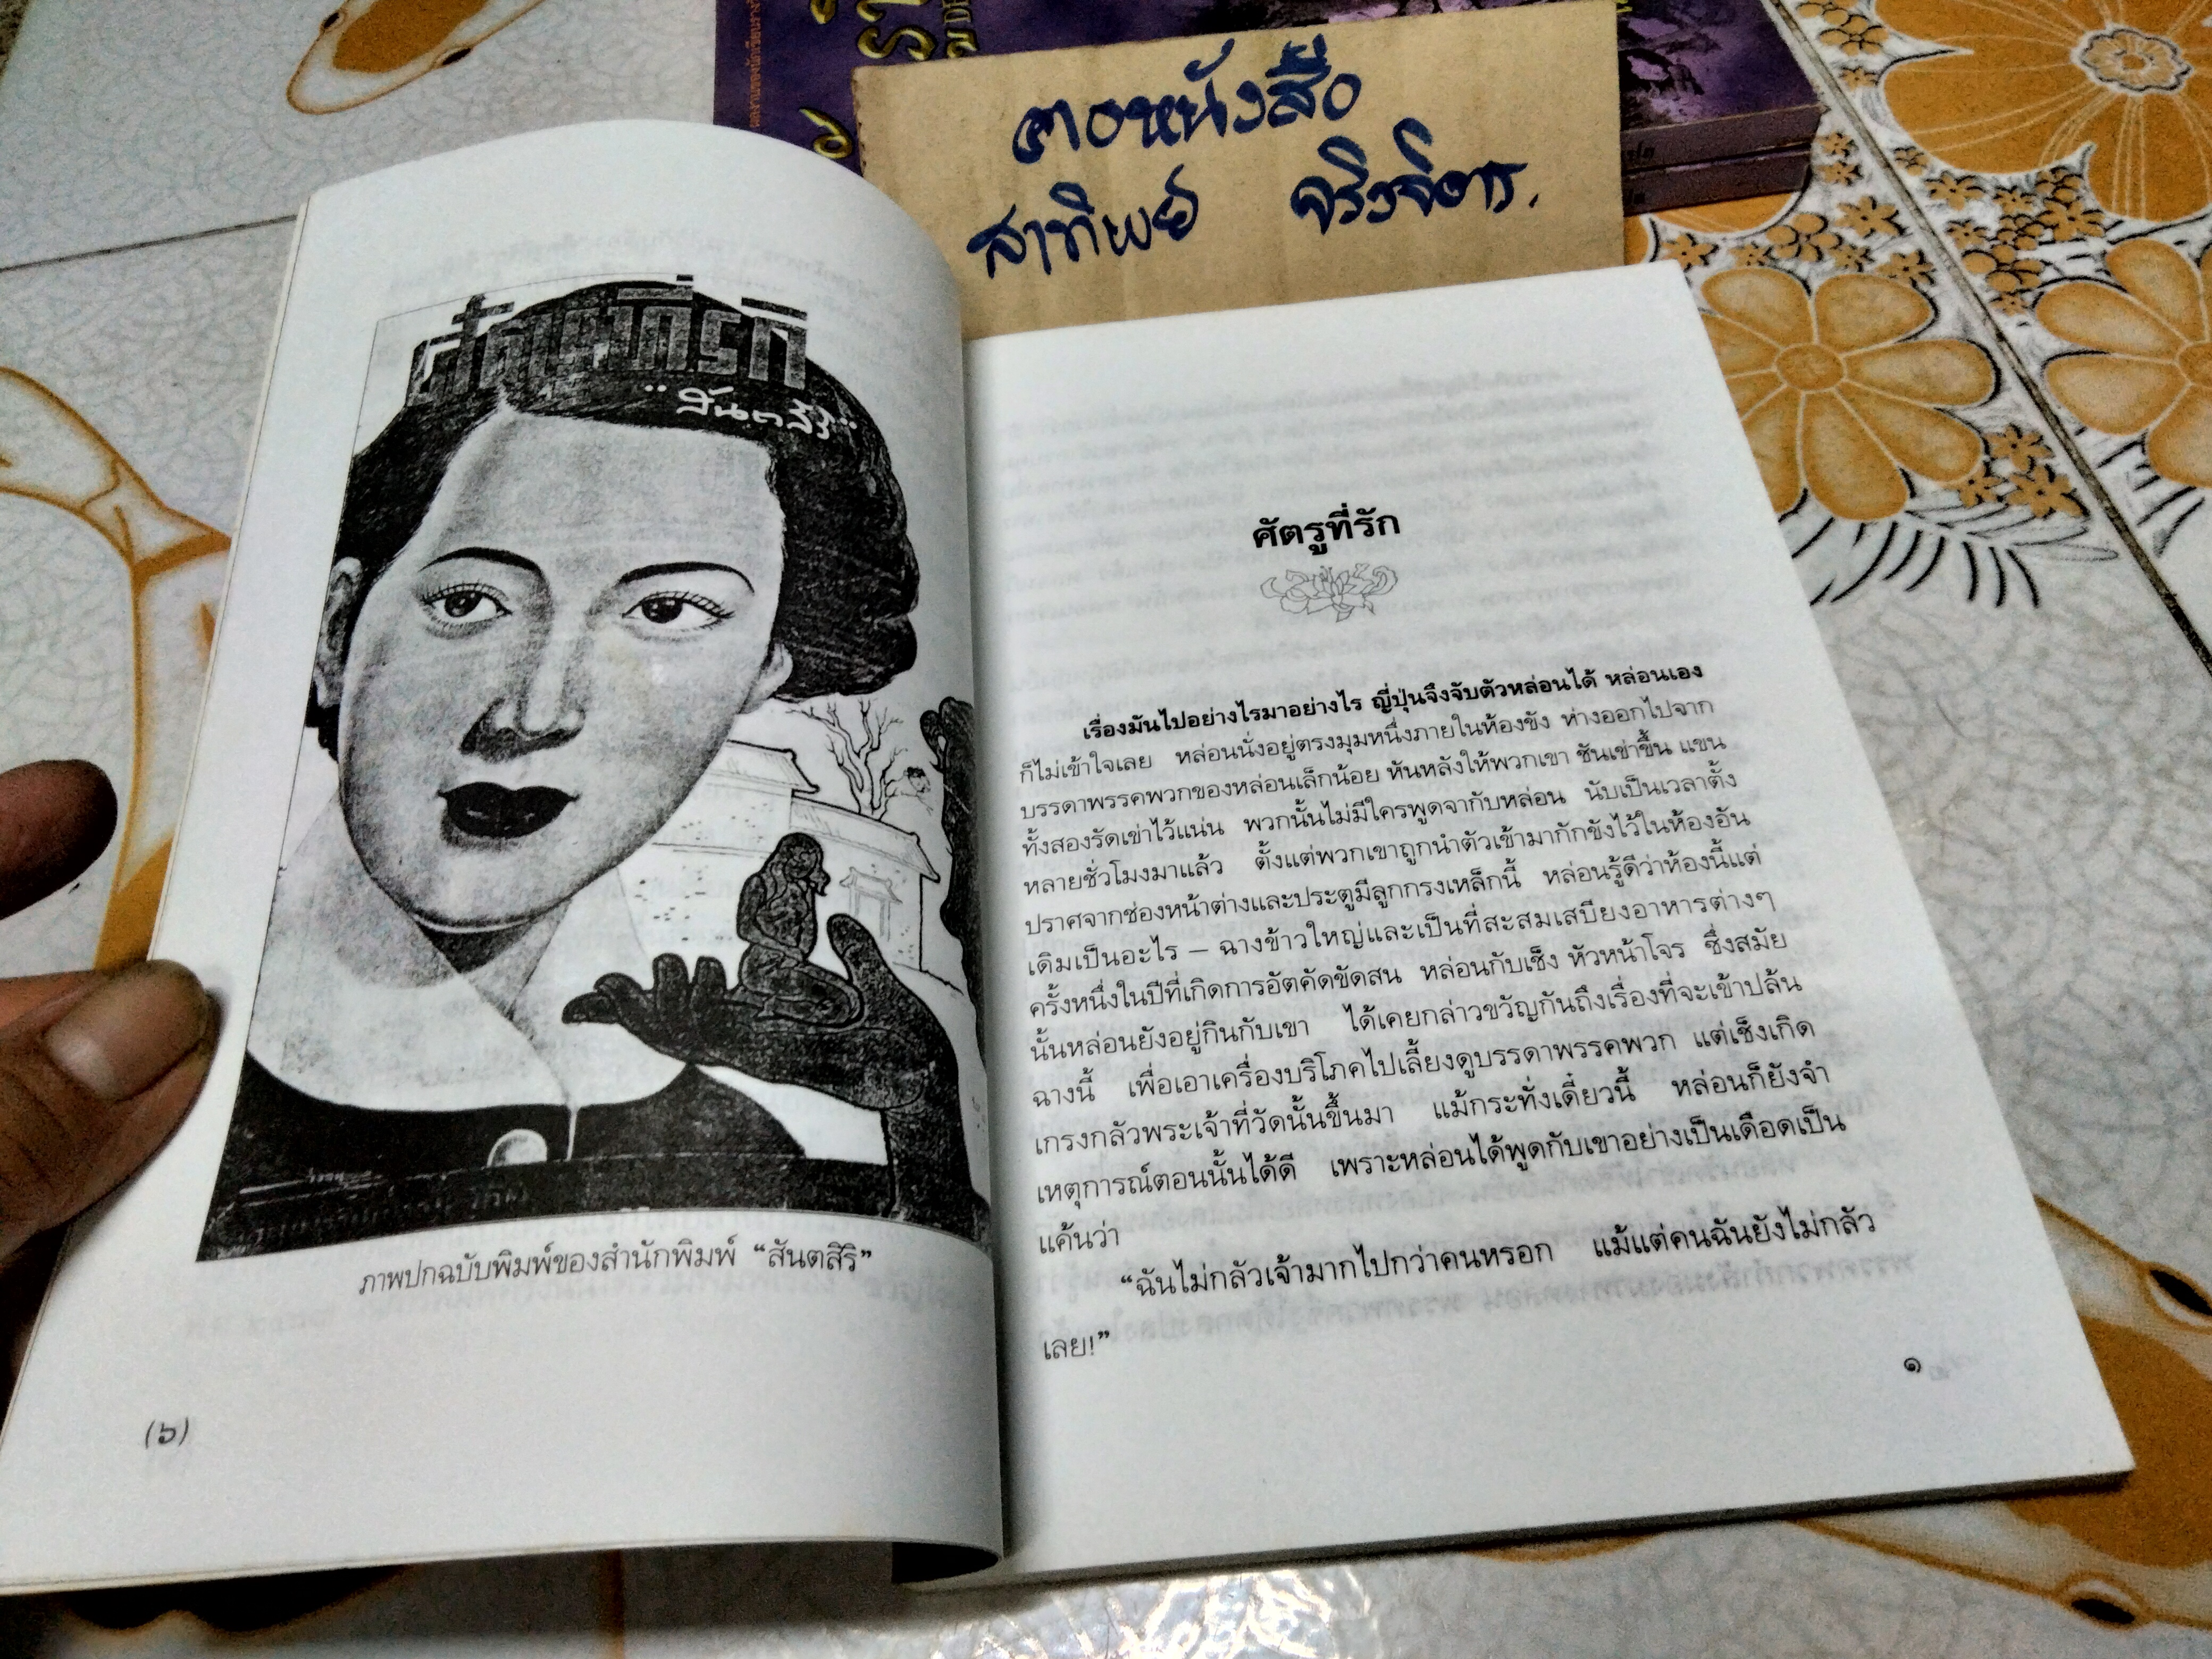 คอหนังสือ
สาทิพย์ จริงจิตร.
ศัตรูที่รัก
"สันตสิริ"
ภาพปกฉบับพิมพ์ของสำนักพิมพ์ “สันตสิริ”
(๖)
ศัตรูที่รัก
เรื่องมันไปอย่างไรมาอย่างไร ญี่ปุ่นจึงจับตัวหล่อนได้ หล่อนเอง
ก็ไม่เข้าใจเลย หล่อนนั่งอยู่ตรงมุมหนึ่งภายในห้องขัง ห่างออกไปจาก
บรรดาพรรคพวกของหล่อนเล็กน้อย หันหลังให้พวกเขา ชันเข่าขึ้น แขน
ทั้งสองรัดเข่าไว้แน่น พวกนั้นไม่มีใครพูดจากับหล่อน นับเป็นเวลาตั้ง
หลายชั่วโมงมาแล้ว ตั้งแต่พวกเขาถูกนำตัวเข้ามากักขังไว้ในห้องอัน
ปราศจากช่องหน้าต่างและประตูมีลูกกรงเหล็กนี้ หล่อนรู้ดีว่าห้องนี้แต่
เดิมเป็นอะไร – ฉางข้าวใหญ่และเป็นที่สะสมเสบียงอาหารต่างๆ
ครั้งหนึ่งในปีที่เกิดการอัตคัดขัดสน หล่อนกับเช็ง หัวหน้าโจร ซึ่งสมัย
นั้นหล่อนยังอยู่กินกับเขา ได้เคยกล่าวขวัญกันถึงเรื่องที่จะเข้าปล้น
ฉางนี้ เพื่อเอาเครื่องบริโภคไปเลี้ยงดูบรรดาพรรคพวก แต่เช็งเกิด
เกรงกลัวพระเจ้าที่วัดนั้นขึ้นมา แม้กระทั่งเดี๋ยวนี้ หล่อนก็ยังจำ
เหตุการณ์ตอนนั้นได้ดี เพราะหล่อนได้พูดกับเขาอย่างเป็นเดือดเป็น
แค้นว่า
“ฉันไม่กลัวเจ้ามากไปกว่าคนหรอก แม้แต่คนฉันยังไม่กลัว
เลย!”
๑